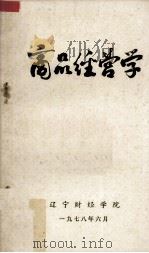 商品经营学
辽宁财经学院
一九七八年六月